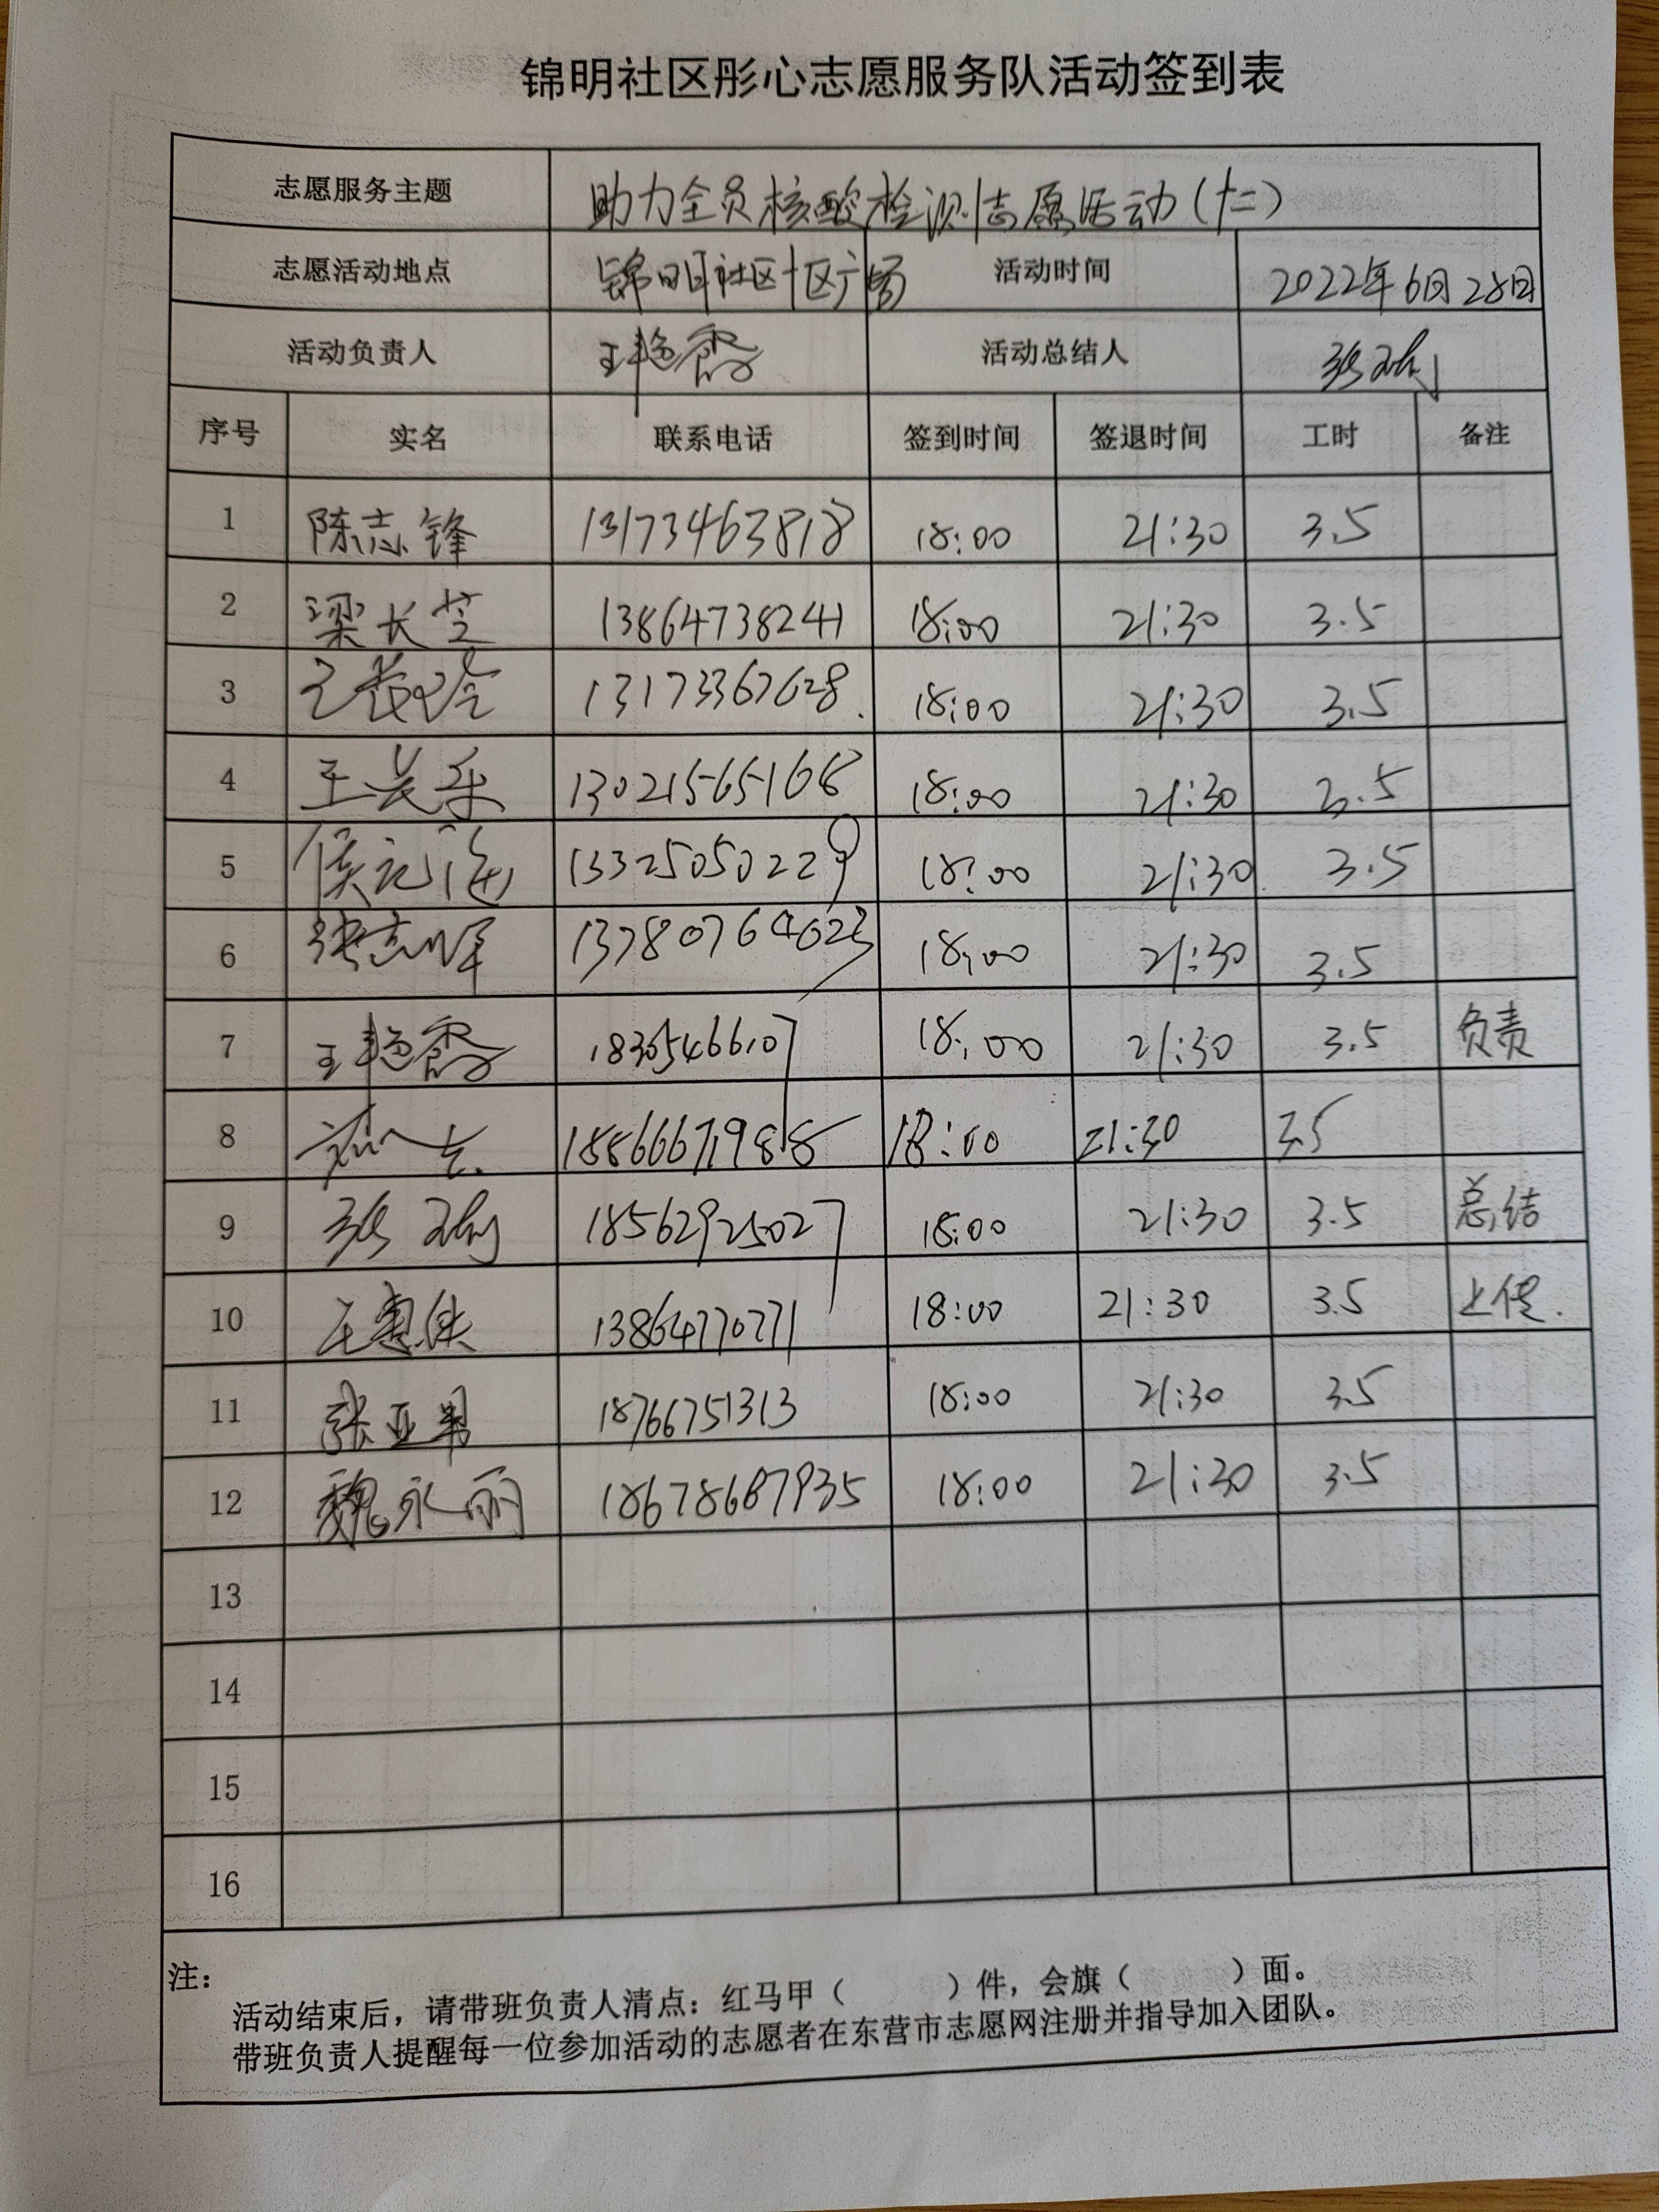 锦明社区彤心志愿服务队活动签到表
志愿服务主题 助力全员核酸检测志愿活动(十二)
志愿活动地点 锦明社区十区广场 活动时间 2022年6月28日
活动负责人 王艳霞 活动总结人
序号 实名 联系电话 签到时间 签退时间 工时 备注
1 陈志锋 13173463818 18:00 21:30 3.5
2 梁长芝 13864738241 18:00 21:30 3.5
3 13173367628 18:00 21:30 3.5
4 13021565168 18:00 21:30 3.5
5 13325050229 18:00 21:30 3.5
6 张志峰 13780764623 18:00 21:30 3.5
7 王艳霞 18305466107 18:00 21:30 3.5 负责
8 18:00 21:30 3.5
9 18562925027 18:00 21:30 3.5 总结
10 13864770771 18:00 21:30 3.5 上传.
11 张亚男 18766751313 18:00 21:30 3.5
12 魏永丽 18678687935 18:00 21:30 3.5
13
14
15
16
注:
活动结束后,请带班负责人清点:红马甲( )件,会旗( )面。
带班负责人提醒每一位参加活动的志愿者在东营市志愿网注册并指导加入团队。